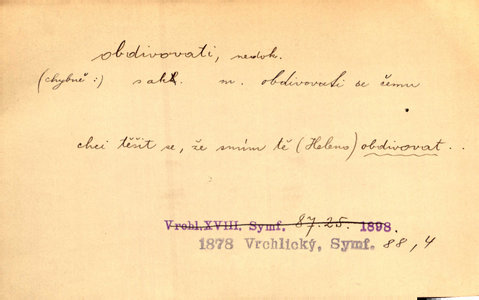 obdivovati, nedok.
(chybně:) sakl. m. obdivovati se čemu
chci těšit se, že smím tě (Heleno) obdivovat..
Vrchl.XVIII. Symf. 87.25. 1898.
1878 Vrchlický, Symf. 88,4